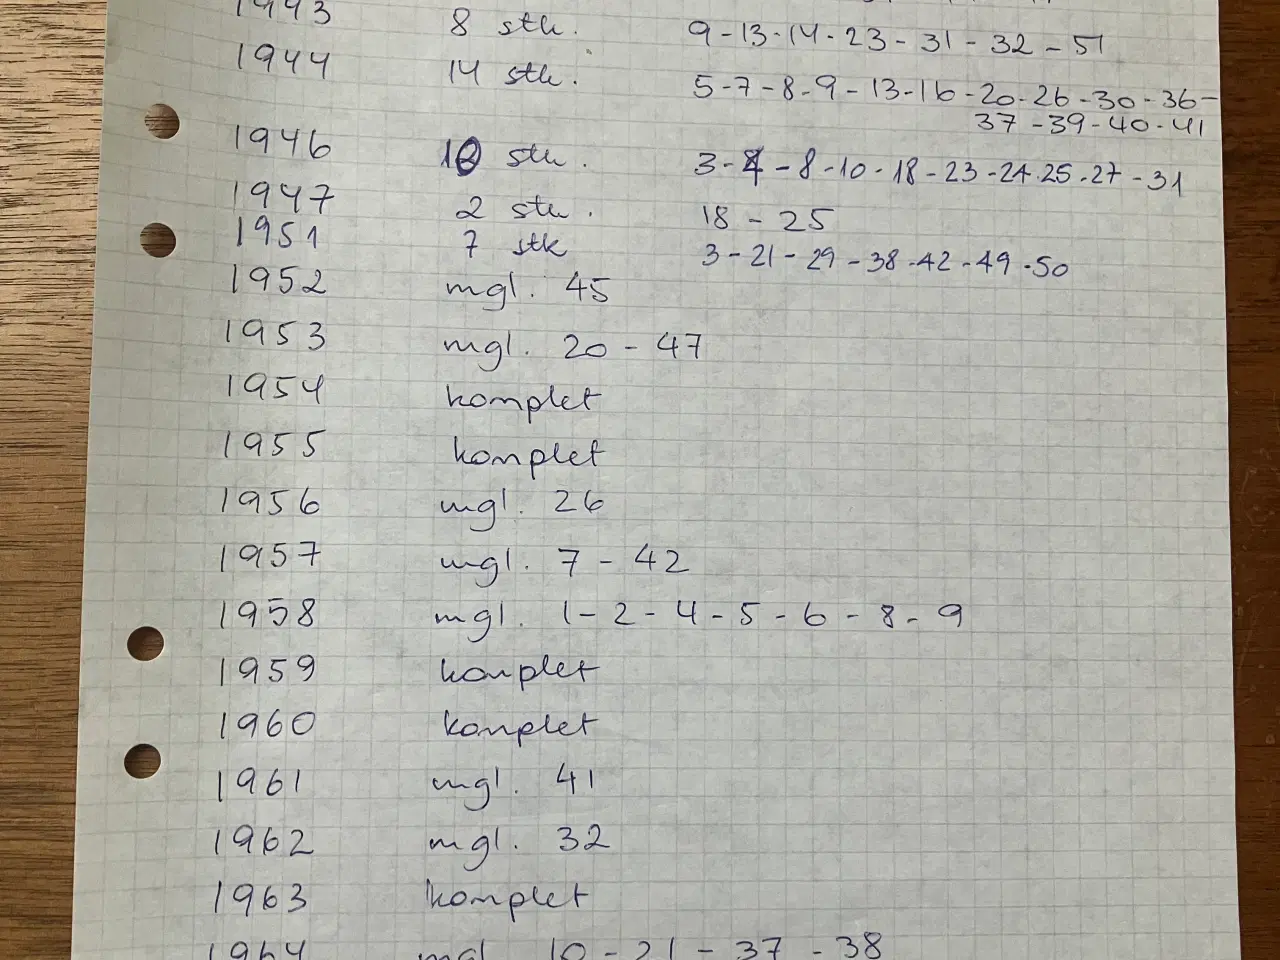 1943 8 stk. 9-13-14-23-31-32-51
1944 14 stk. 5-7-8-9-13-16-20-26-30-36-
37-39-40-41
1946 10 stk. 3-4-8-10-18-23-24-25-27-31
1947 2 stk. 18-25
1951 7 stk 3-21-29-38-42-49-50
1952 mgl. 45
1953 mgl. 20-47
1954 komplet
1955 komplet
1956 mgl. 26
1957 mgl. 7-42
1958 mgl. 1-2-4-5-6-8-9
1959 komplet
1960 komplet
1961 mgl. 41
1962 mgl. 32
1963 komplet
1964 mgl. 10-21-37-38